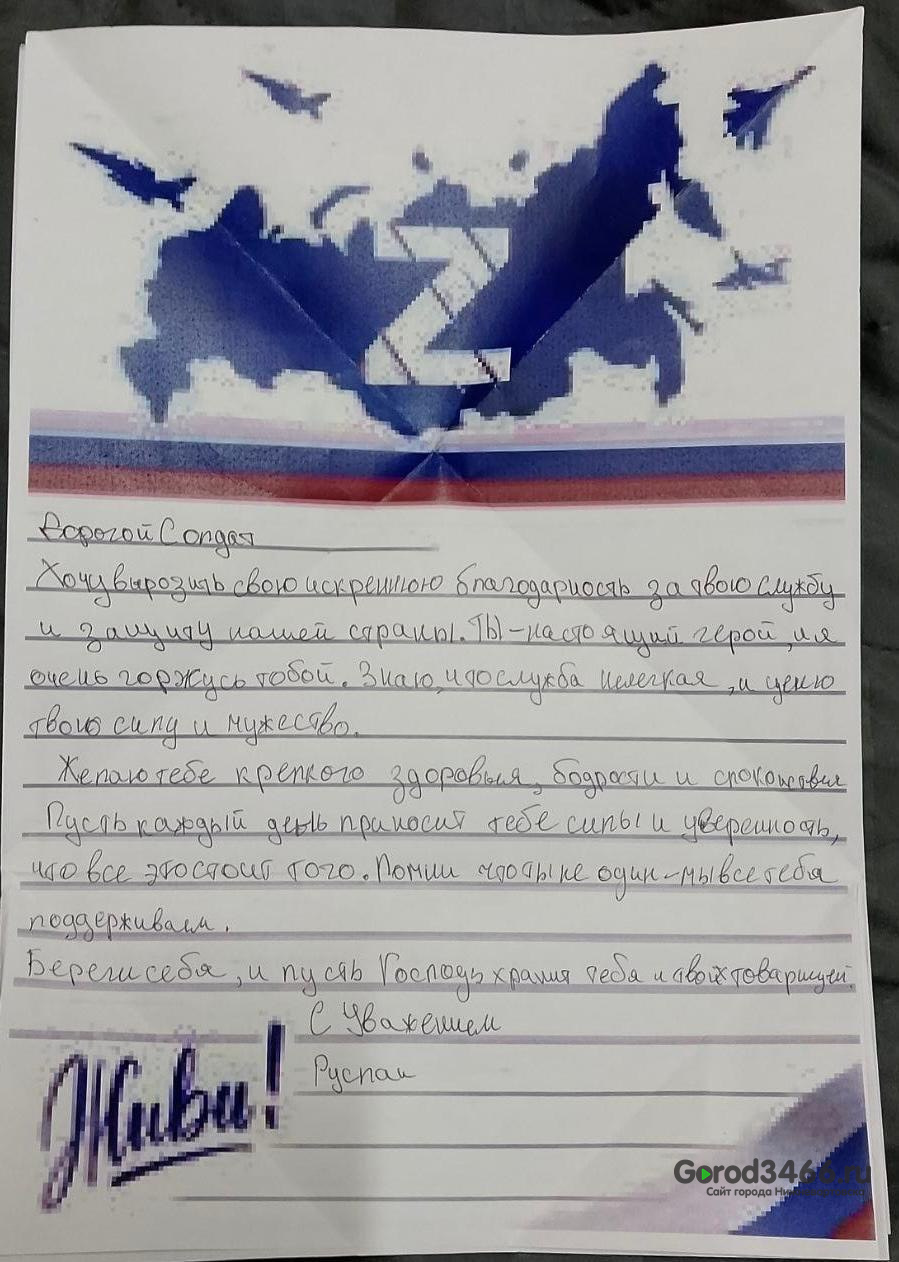 Z
Дорогой Солдат
Хочу вырозить свою искреннюю благодарность за твою службу
и защиту нашей страны. Ты - настоящий герой, и я
очень горжусь тобой. Знаю, что служба нелегкая, и ценю
твою силу и мужество.
Желаю тебе крепкого здоровья, бодрости и спокойствия
Пусть каждый день приносит тебе силы и уверенность,
что все это стоит того. Помни что ты не один - мы все тебя
поддерживаем.
Береги себя, и пусть Господь хранит тебя и твоих товарищей.
С Уважением
Руслан
Живи!
Gorod3466.ru
Сайт города